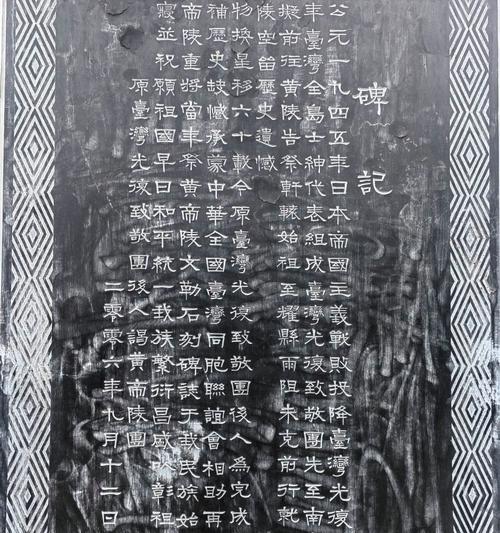 碑記
公元一九四五年日本帝國主義戰敗投降臺灣光復
年臺灣全島士紳代表組成臺灣光復致敬團先至南
擬前往黃陵告祭軒轅始祖至耀縣雨阻未克前行就
陵空留歷史遺憾
物換星移六十載今原臺灣光復致敬團後人為完成
補歷史缺憾承蒙中華全國臺灣同胞聯誼會相助再
帝陵重將當年祭黃帝陵文勒石刻碑誌于我民族始
寢並祝願祖國早日和平統一我族繁衍昌盛以彰祖
原臺灣光復致敬團後人謁黃帝陵團
二零零六年九月十二日